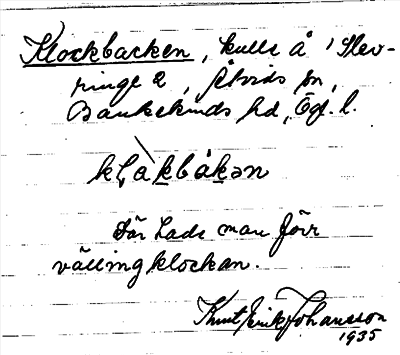 Klockbacken, kulle å Slev-
ringe 2, Åtvids sn,
Bankekinds hd, Ögl. l.
kḷàkbákən
Där hade man förr
vällingklockan.
Knut Erik Johansson
1935